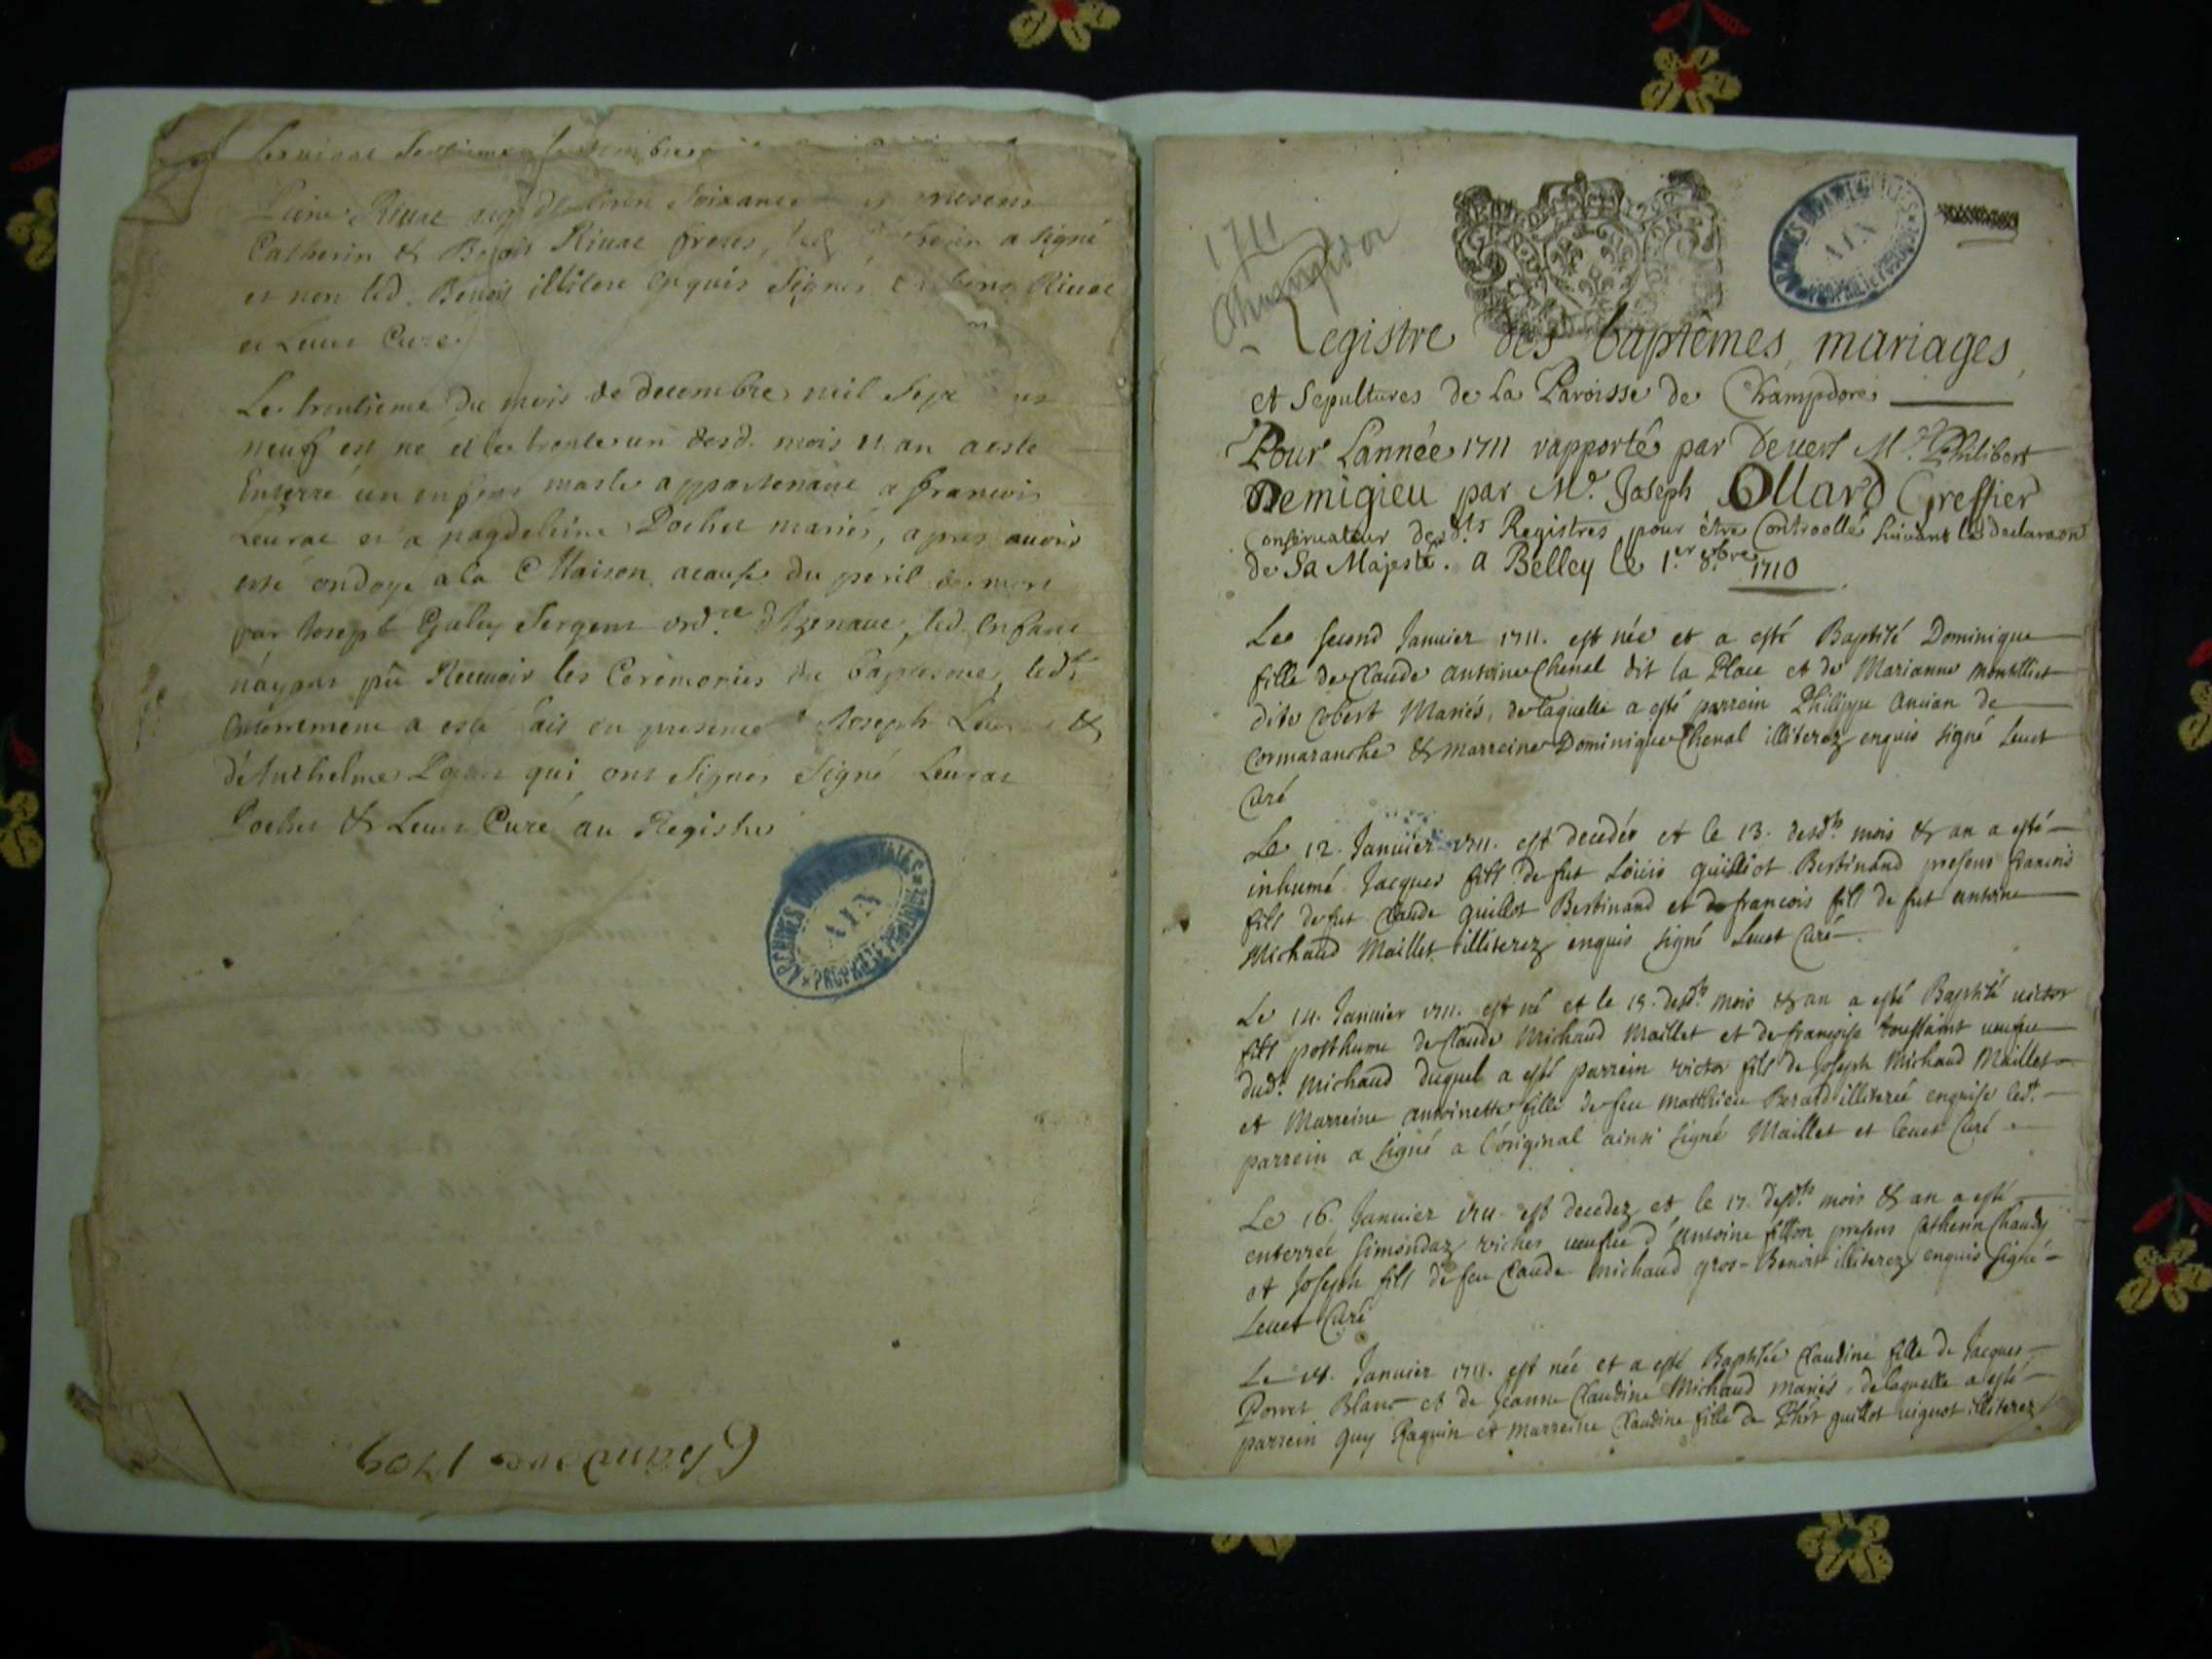 Catherin & Benois Riuat freres, led a signé
et non led. Benois illitere enquis Signés Riuat
et Leuet Curé
Le trentieme du mois de decembre mil sept
neuf est né et le trente un desd. mois et an a esté
Enterré un enfans masle appartenant a francois
Leurat et a magdeleine Pochet mariés, apres auoir
esté ondoyé a la Maison acause du peril de mort
par Joseph Sergent ord.re led. Enfant
n'ayant pû Receuoir les Cérémonies du baptesme, led.t
enterrement a esté fait en presence Joseph &
d'Anthelme qui ont Signés Signé Leurat
Pochet & Leuet Curé au Registre
ARCHIVES DÉPARTEMENTALES
AIN
PROPRIÉTÉ PUBLIQUE
Chandore 1709
1711
Champdor
ARCHIVES DÉPARTEMENTALES
AIN
PROPRIÉTÉ PUBLIQUE
Registre des baptêmes, mariages,
et Sepultures de La Paroisse de Champdore
Pour L'année 1711 rapporté par Deuert M.re Philibert
Demigieu par M.e Joseph Ollard Greffier
Conseruateur desd.ts Registres pour être Controollé suiuant la declaraon
de Sa Majesté. a Belley le 1.er 8.bre 1710
Le second Januier 1711. est née et a esté Baptisé Dominique
fille de Claude antoine Chenal dit la Place et de Marianne montilliet
dite Cobert Mariés, de laquelle a esté parrein Philippe ancian de
Cormaranche & marreine Dominique Chenal illiterez enquis signé Leuet
Curé
Le 12. Januier 1711. est decedés et le 13. desd.ts mois & an a esté
inhumé Jacques fils de fut Louis guilliot Bertinand presens francois
fils de fut Claude guillot Bertinand et de francois fils de fut antoine
Michaud Maillet illiterez enquis signé Leuet Curé
Le 14. Januier 1711. est né et le 15. desd.ts mois & an a esté Baptisé victor
fils posthume de Claude Michaud Maillet et de françoise toussaint ueufue
dud.t Michaud duquel a esté parrein victor fils de Joseph Michaud Maillet
et Marreine antoinette fille de feu Matthieu Berard illiterée enquise led.t
parrein a signé a l'original ainsi signé Maillet et leuet Curé
Le 16. Januier 1711. est decedez et le 17. desd.ts mois & an a esté
enterrée Simondaz riches ueufue d'antoine fillon presens Catherin Chaudy
et Joseph fils de feu Claude Michaud gros-Benoit illiterez enquis signé
Leuet Curé
Le Januier 1711. est née et a esté Baptisée Claudine fille de Jacques
Porret Blanc et de Jeanne Claudine Michaud mariés, de laquelle a esté
parrein guy Raquin et marreine Claudine fille de guillot uignot illiterez